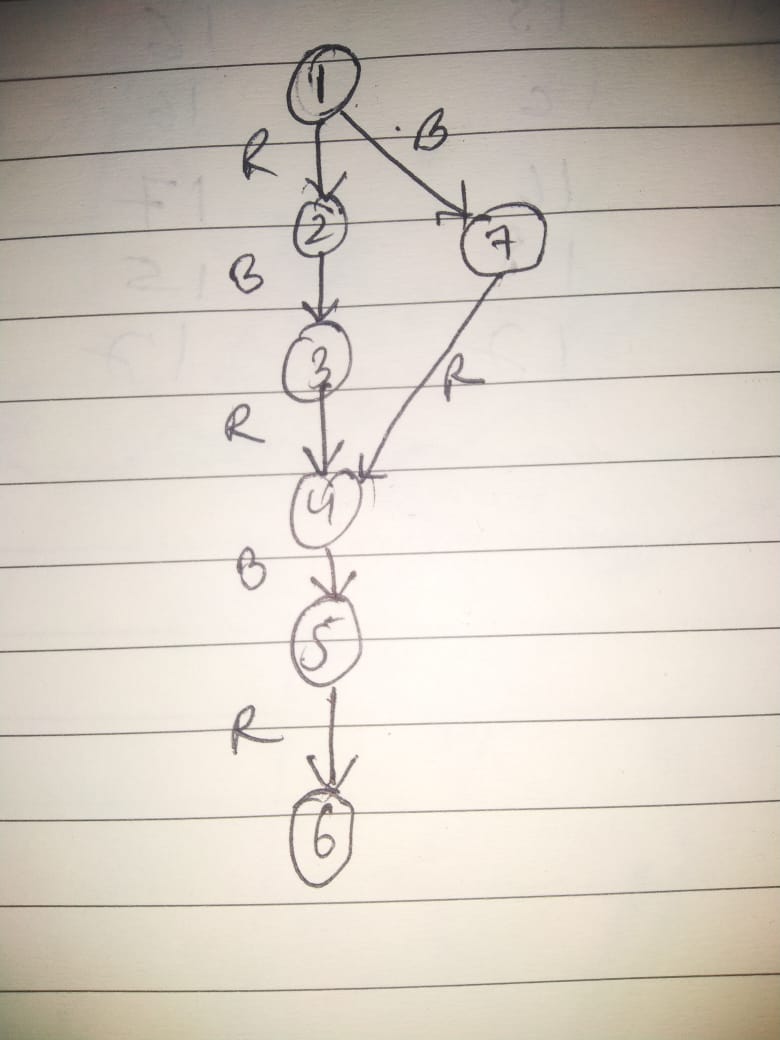 1
R B
2 7
B
3
R R
4
B
5
R
6